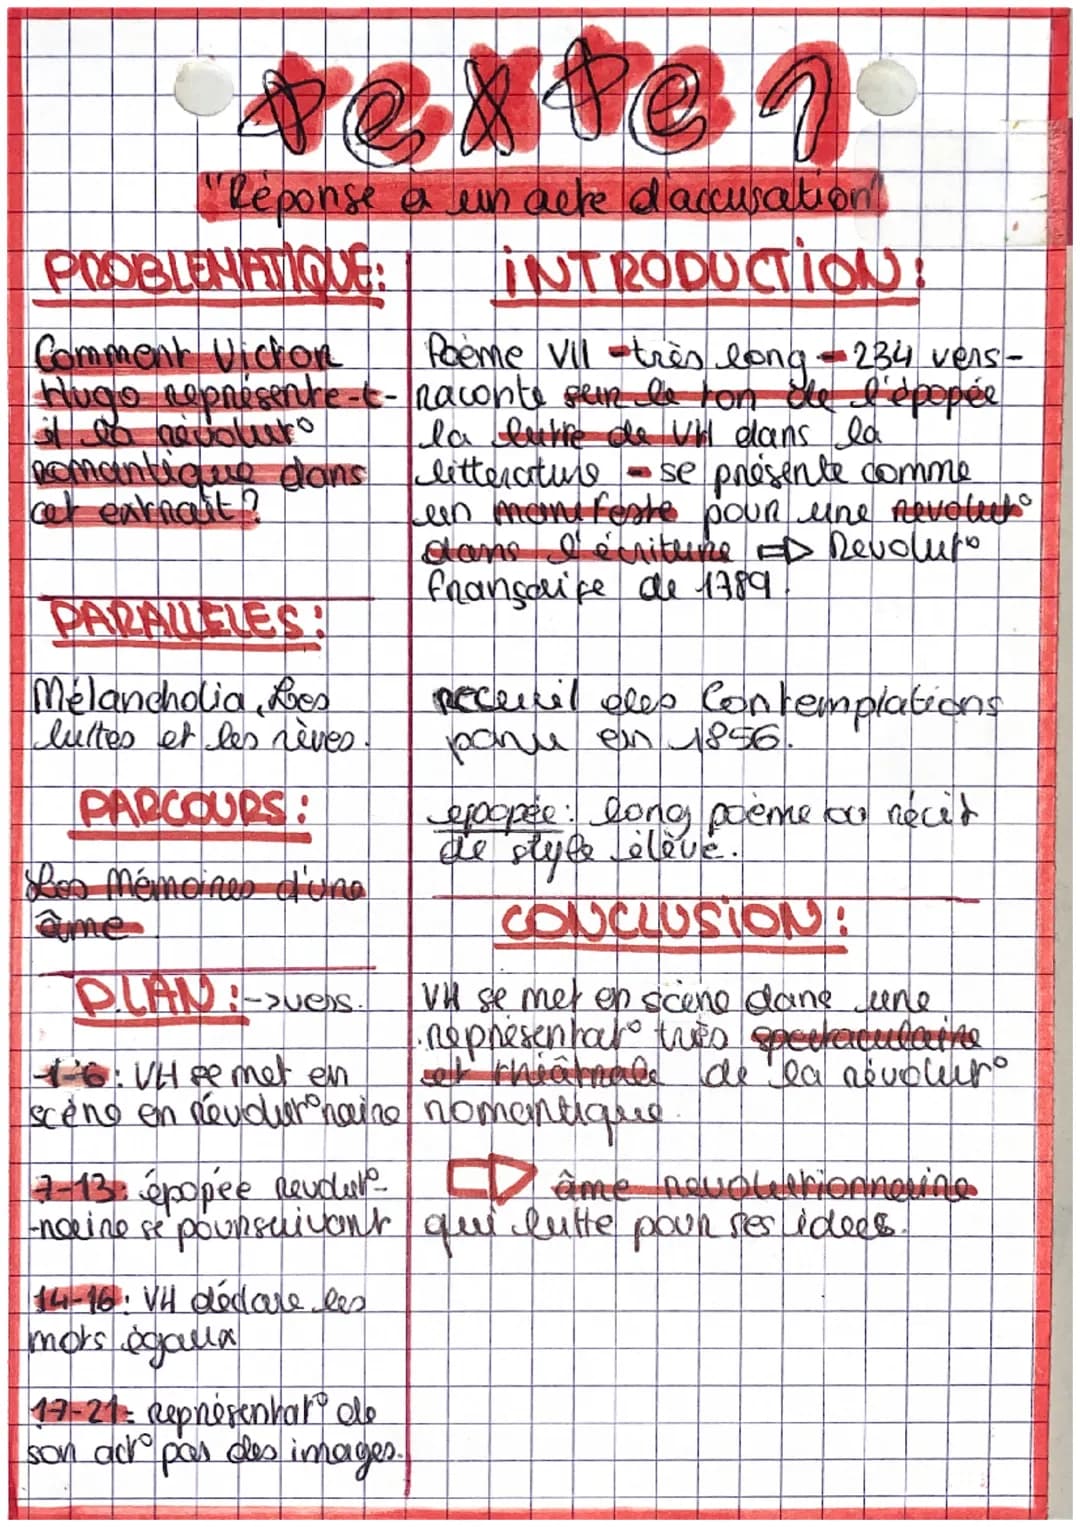 texte 1
"Réponse à un acte d'accusation"
PROBLEMATIQUE:
Comment Victor
Hugo représente-t-
il la révolut°
romantique dans
cet extrait ?
PARALLELES:
Mélancholia, Les
luttes et les rêves.
PARCOURS:
Les Mémoires d'une
âme
PLAN: -> vers.
1-6: VH se met en
scène en révolut°naire
7-13: épopée revolut°-
-naire se poursuivant
14-16: VH déclare les
mots égaux
17-21: représentat° de
son act° pas des images.
INTRODUCTION:
Poème VII - très long - 234 vers -
raconte sur le ton de l'épopée
la lutte de VH dans la
litterature - se présente comme
un manifeste pour une revolut°
dans l'écriture ⇨ Revolut°
française de 1789.
receuil des Contemplations
paru en 1856.
epopée: long poème ou récit
de style élevé.
CONCLUSION:
VH se met en scène dans une
représentat° très spectaculaire
et théâtrale de la révolut°
romantique.
⇨ âme revolutionnaire
qui lutte pour ses idees.